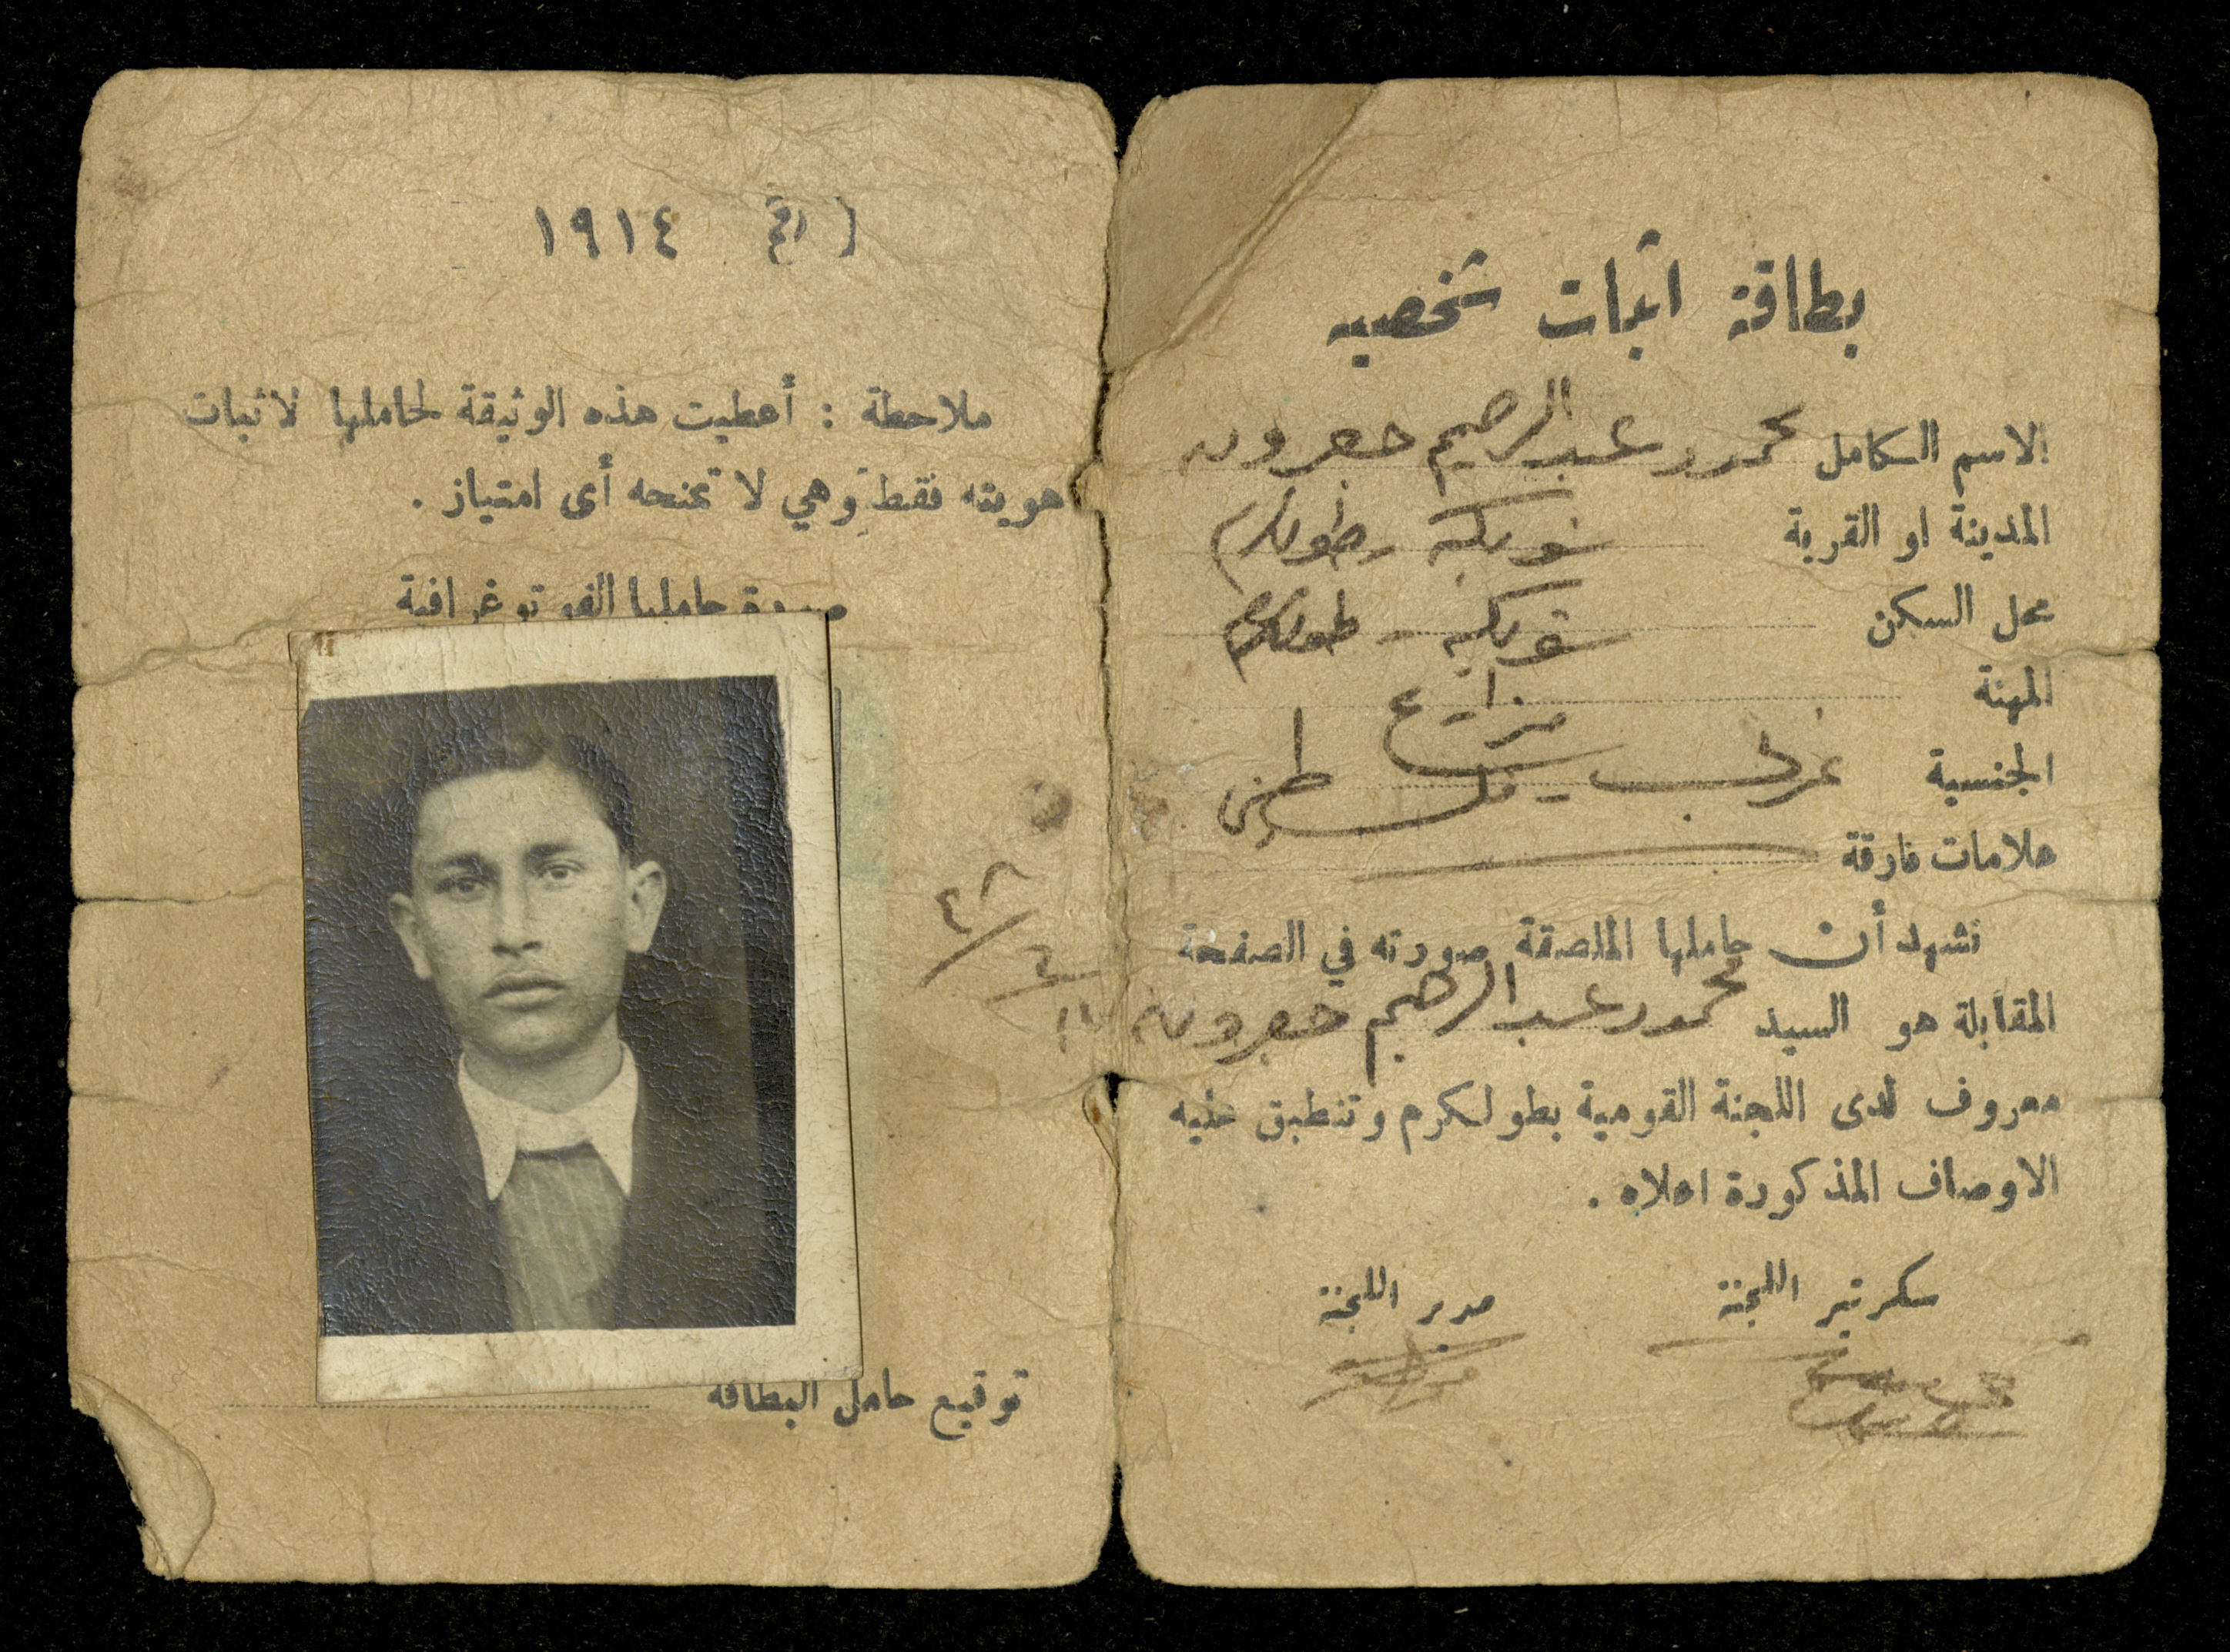 بطاقة اثبات شخصيه
الاسم الكامل محمود عبد الرحيم جعرون
المدينة او القرية شويكه - طولكرم
محل السكن شويكه - طولكرم
المهنة مزارع
الجنسية عربي - فلسطيني
علامات فارقة
نشهد أن حاملها الملصقة صورته في الصفحة
المقابلة هو السيد محمود عبد الرحيم جعرون
معروف لدى اللجنة القومية بطولكرم وتنطبق عليه
الاوصاف المذكورة اعلاه .
سكرتير اللجنة مدير اللجنة
رقم ١٩١٤
ملاحظة : أعطيت هذه الوثيقة لحاملها لاثبات
هويته فقط وهي لا تمنحه أى امتياز .
صورة حاملها الفوتوغرافية
توقيع حامل البطاقة